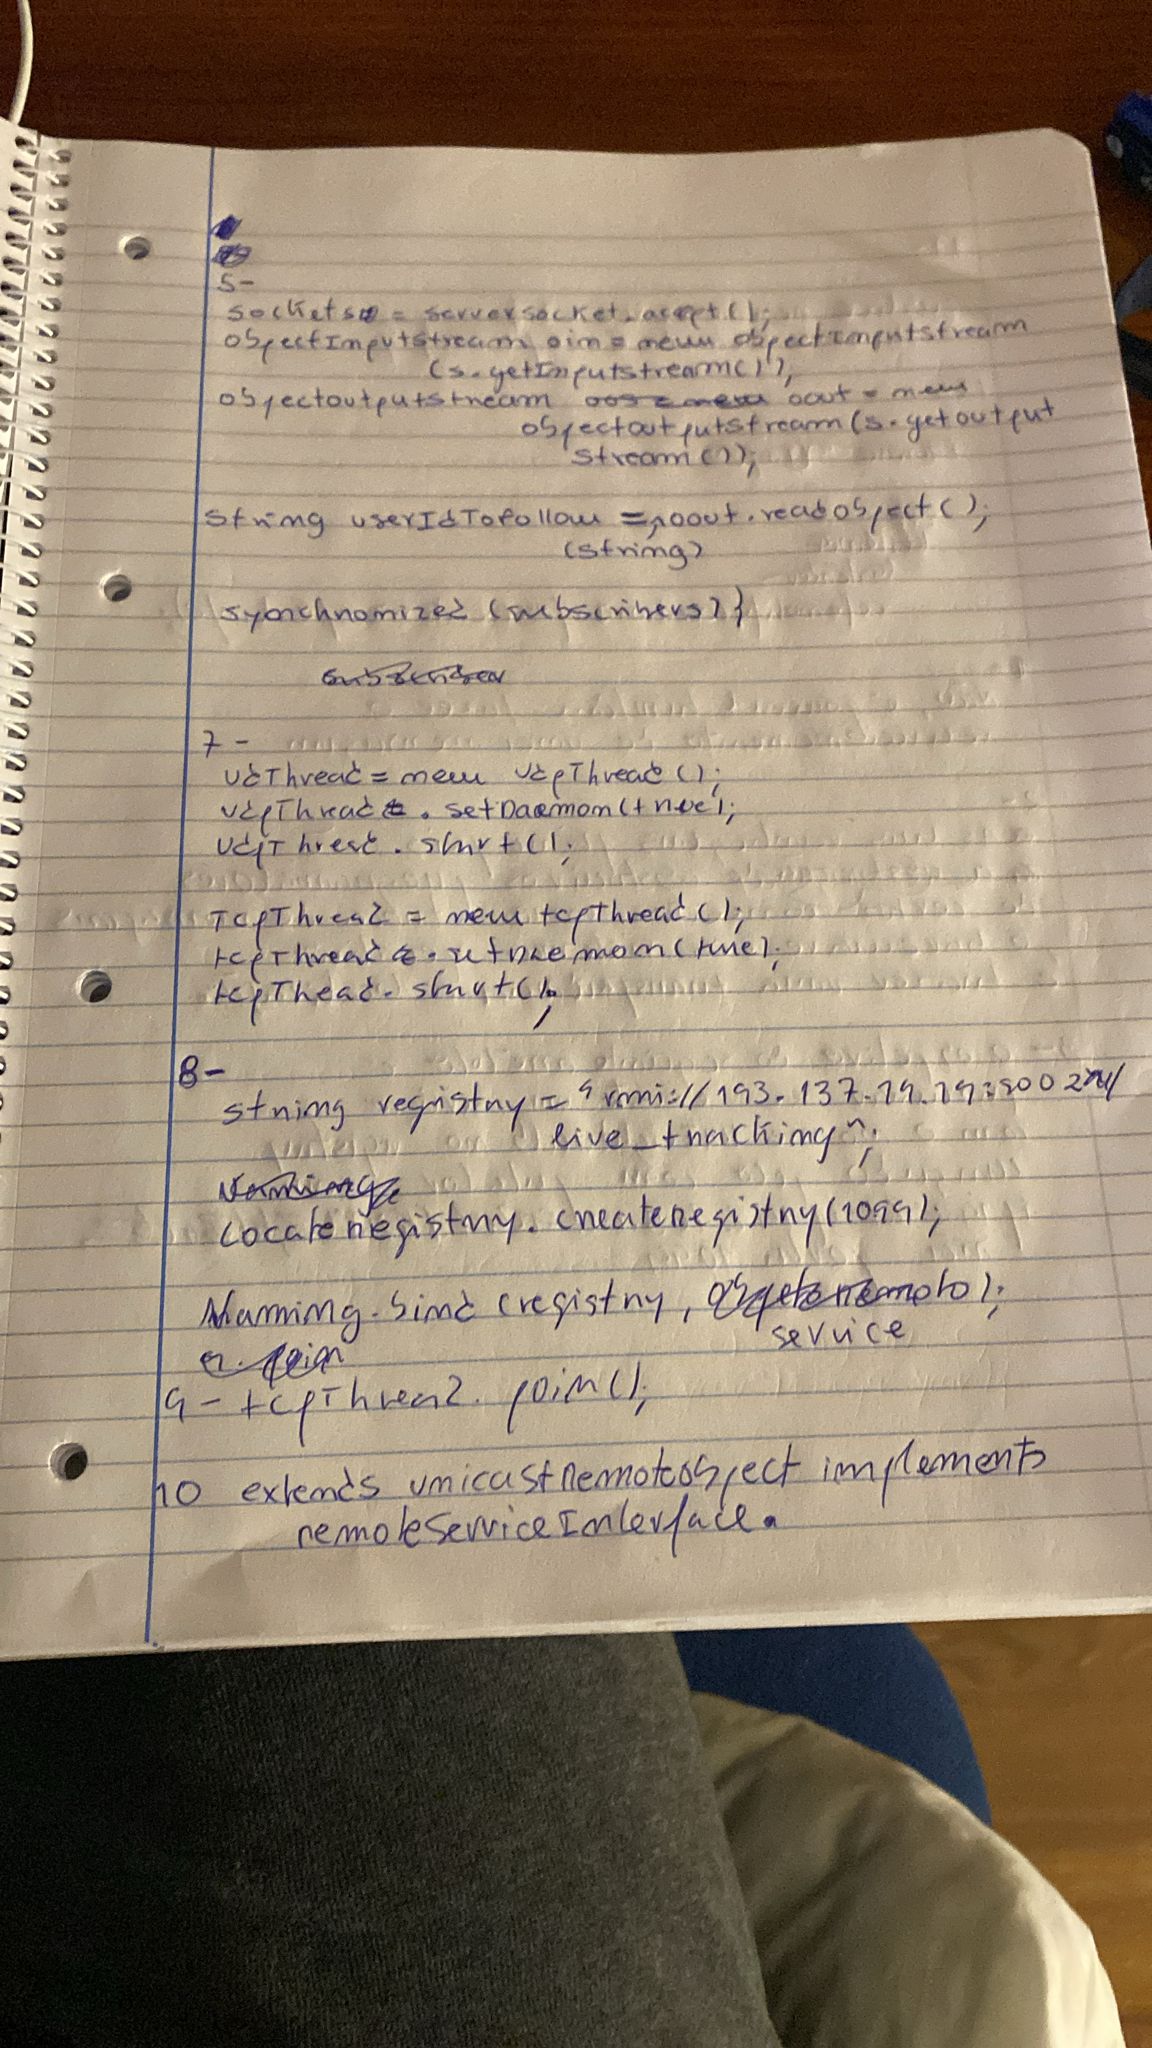 5-
sockets = serversocket.accept();
objectInputstream oin = new objectInputstream
(s.getInputstream());
objectoutputstream oout = new
objectoutputstream(s.getoutput
stream());
String userIdTofollow = oout.readobject();
(string)
synchronized (subscribers) {
7-
UdThread = new UdpThread();
UdpThread. setDaemon(true);
UdpThread. start();
TcpThread = new tcpThread();
tcpThread. setDaemon(true);
tcpThead. start();
8-
string registry = "rmi://193.137.79.79:
live_tracking";
Locateregistry. createregistry(1099);
Naming.bind (registry, );
service
9- tcpThread. join();
10 extends unicastRemoteobject implements
remoteServiceInterface.